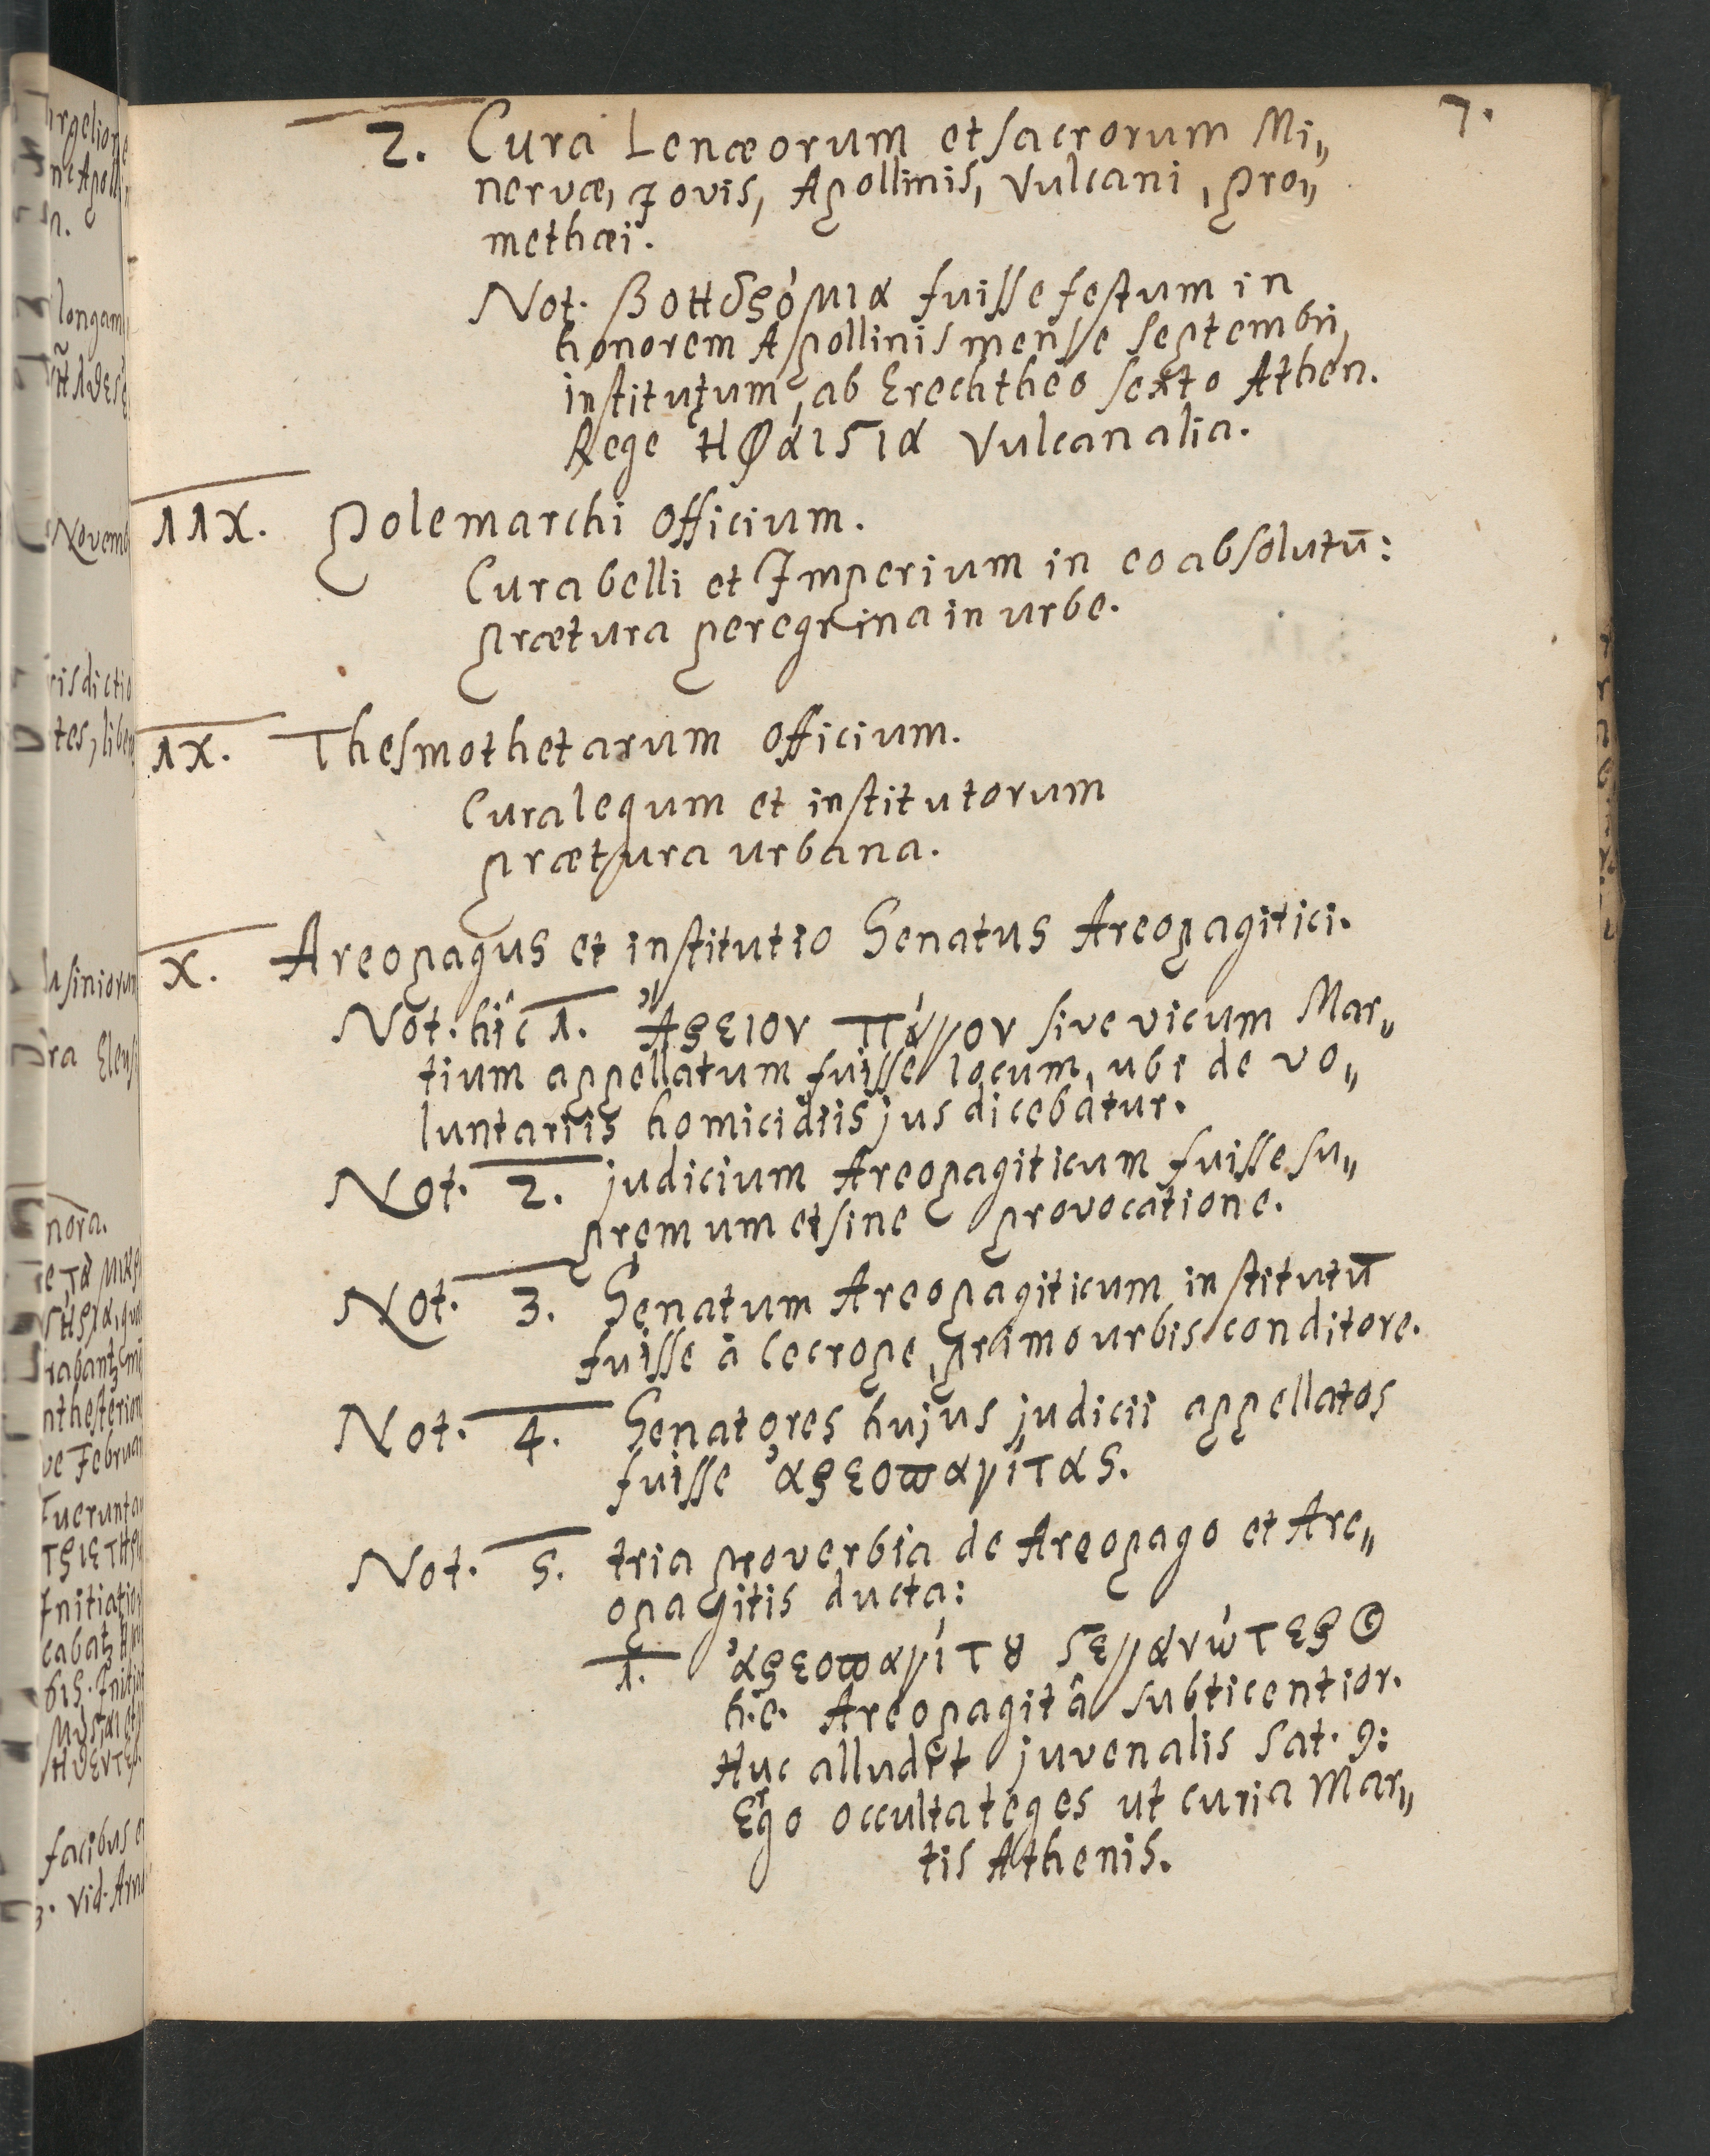 7.
2. Cura Lenæorum et sacrorum Mi„
nervæ, Jovis, Apollinis, Vulcani, Pro„
methæi.
Not. βοηδρόμια fuisse festum in
honorem Apollinis mense Septembri,
institutum ab Erechtheo sexto Athen.
Rege ἡφαίστια Vulcanalia.
IIX. Polemarchi officium.
Cura belli et Imperium in eo absolutū:
prætura peregrina in urbe.
IX. Thesmothetarum officium.
Cura legum et institutorum
prætura urbana.
X. Areopagus et institutio Senatus Areopagitici.
Not. hîc 1. Ἄρειον πάγον sive vicum Mar„
tium appellatum fuisse locum, ubi de vo„
luntariis homicidiis jus dicebatur.
Not. 2. judicium Areopagiticum fuisse su„
premum et sine provocatione.
Not. 3. Senatum Areopagiticum institutū
fuisse â Cecrope, primo urbis conditore.
Not. 4. Senatores hujus judicii appellatos
fuisse ἀρεοπαγίτας.
Not. 5. tria proverbia de Areopago et Are„
opagitis ducta:
1. ἀρεοπαγίτȣ στεγανώτερος
h.e. Areopagitâ subticentior.
Huc alludit juvenalis Sat. 9:
Ergo occulta teges ut curia Mar„
tis Athenis.